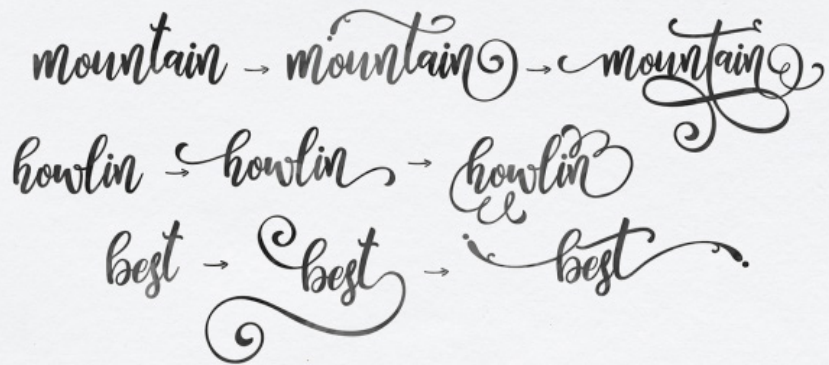 mountain → mountain → mountain
howlin → howlin → howlin
best → best → best